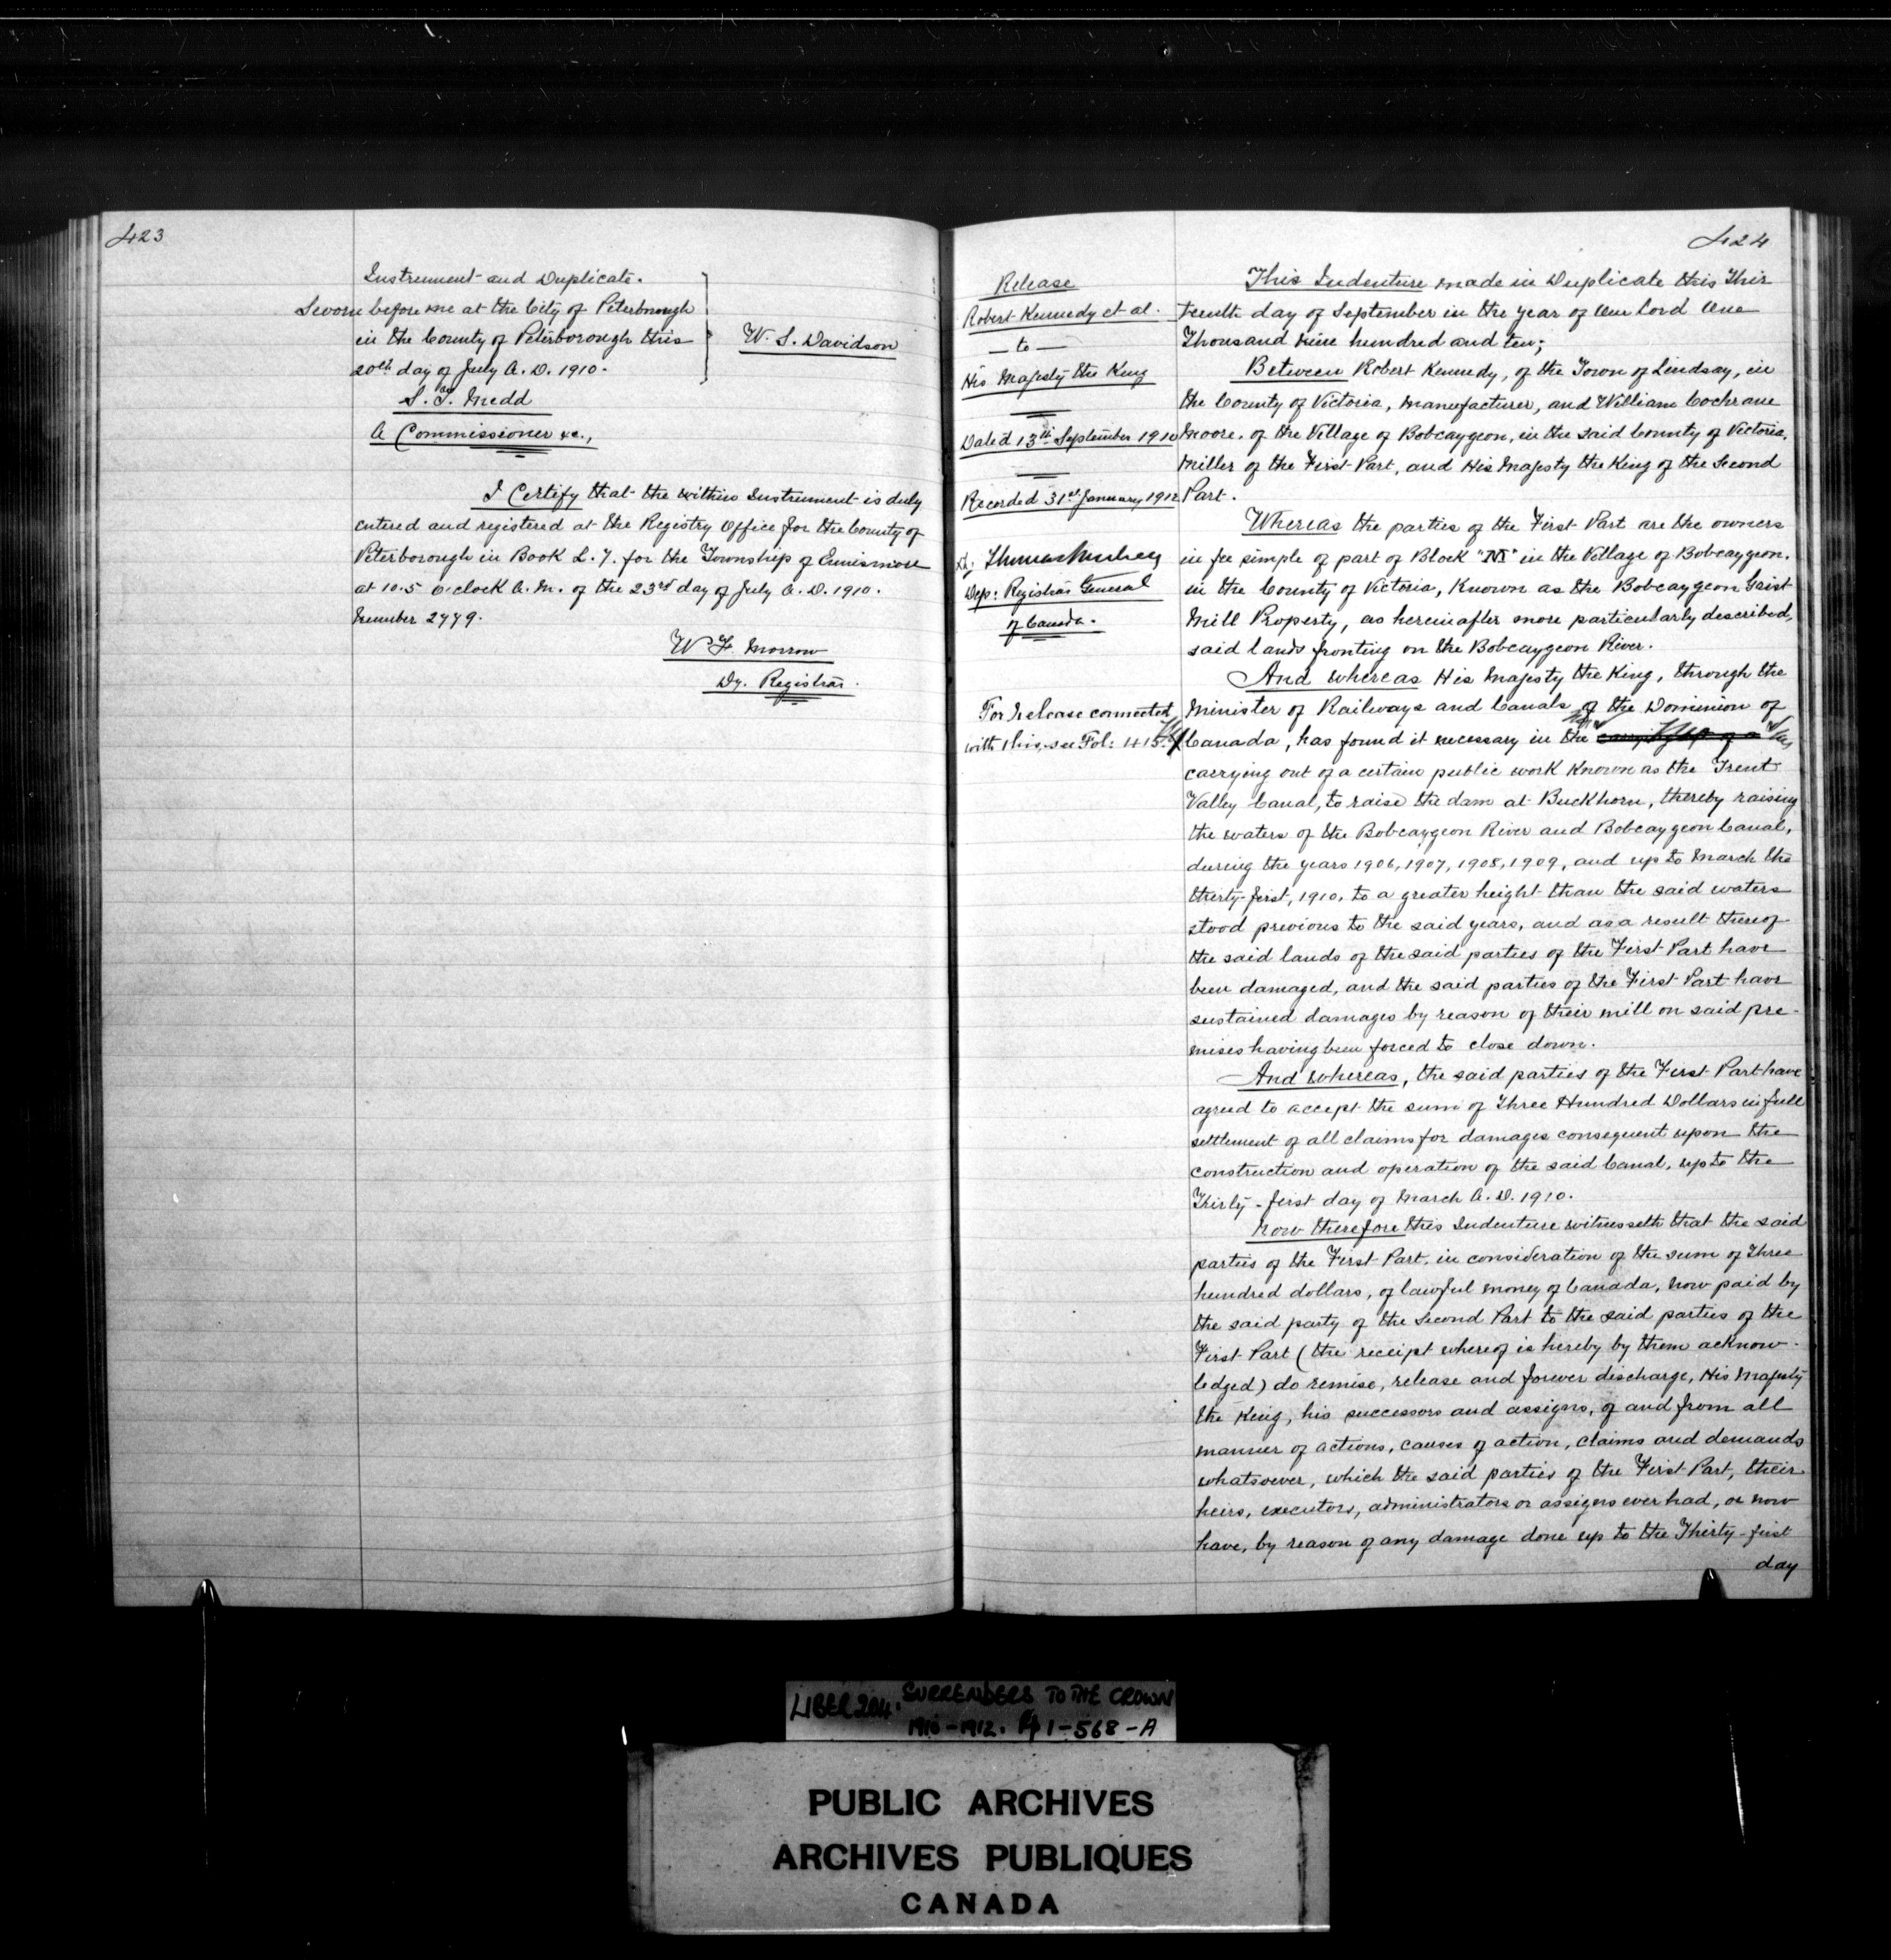 423
Instrument and Duplicate.
Sworn before me at the City of Peterborough
in the County of Peterborough this
20th day of July A. D. 1910.
W. S. Davidson
S. T. Medd
A Commissioner &c.,
I Certify that the within Instrument is duly
entered and registered at the Registry Office for the County of
Peterborough in Book L. 7. for the Township of Ennismore
at 10.5 o'clock A. M. of the 23rd day of July A. D. 1910.
Number 2779.
W. F. Morrow
Dy. Registrar.
424
Release
Robert Kennedy et al.
— to —
His Majesty the King
Dated 13th September 1910
Recorded 31st January 1912
Thomas Mulvey
Dep: Registrar General
of Canada.
For release connected
with this, see Fol: 415.
This Indenture made in Duplicate this Thir
teenth day of September in the year of Our Lord One
Thousand nine hundred and ten;
Between Robert Kennedy, of the Town of Lindsay, in
the County of Victoria, Manufacturer, and William Cochrane
Moore, of the Village of Bobcaygeon, in the said County of Victoria,
Miller of the First Part, and His Majesty the King of the Second
Part.
Whereas the parties of the First Part are the owners
in fee simple of part of Block "N" in the Village of Bobcaygeon,
in the County of Victoria, Known as the Bobcaygeon Grist
Mill Property, as hereinafter more particularly described,
said lands fronting on the Bobcaygeon River.
And whereas His Majesty the King, through the
Minister of Railways and Canals of the Dominion of
Canada, has found it necessary in the
carrying out of a certain public work known as the Trent
Valley Canal, to raise the dam at Buckhorn, thereby raising
the waters of the Bobcaygeon River and Bobcaygeon Canal,
during the years 1906, 1907, 1908, 1909, and up to March the
thirty-first, 1910, to a greater height than the said waters
stood previous to the said years, and as a result thereof
the said lands of the said parties of the First Part have
been damaged, and the said parties of the First Part have
sustained damages by reason of their mill on said pre-
mises having been forced to close down.
And whereas, the said parties of the First Part have
agreed to accept the sum of Three Hundred Dollars in full
settlement of all claims for damages consequent upon the
construction and operation of the said Canal, up to the
Thirty-first day of March A. D. 1910.
Now therefore this Indenture witnesseth that the said
parties of the First Part, in consideration of the sum of Three
hundred dollars, of lawful money of Canada, now paid by
the said party of the Second Part to the said parties of the
First Part (the receipt whereof is hereby by them acknow-
ledged) do remise, release and forever discharge, His Majesty
the King, his successors and assigns, of and from all
manner of actions, causes of action, claims and demands
whatsoever, which the said parties of the First Part, their
heirs, executors, administrators or assigns ever had, or now
have, by reason of any damage done up to the Thirty-first
day
LIBER 204. SURRENDERS TO THE CROWN
1910-1912. Pp 1-568-A
PUBLIC ARCHIVES
ARCHIVES PUBLIQUES
CANADA